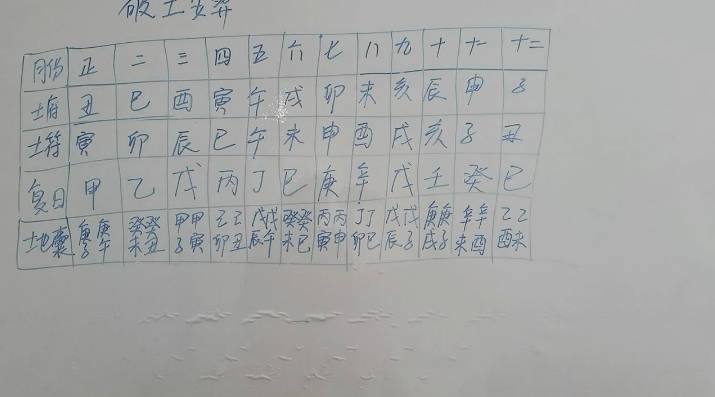 破土安葬
月份 正 二 三 四 五 六 七 八 九 十 十一 十二
土府 丑 巳 酉 寅 午 戌 卯 未 亥 辰 申 子
土符 寅 卯 辰 巳 午 未 申 酉 戌 亥 子 丑
复日 甲 乙 戊 丙 丁 巳 庚 辛 戊 壬 癸 巳
地囊 庚子 庚午 癸未 癸丑 甲子 甲寅 乙卯 乙丑 戊辰 戊午 癸未 癸巳 丙寅 丙申 丁卯 丁巳 戊辰 戊子 庚戌 庚子 辛未 辛酉 乙酉 乙未